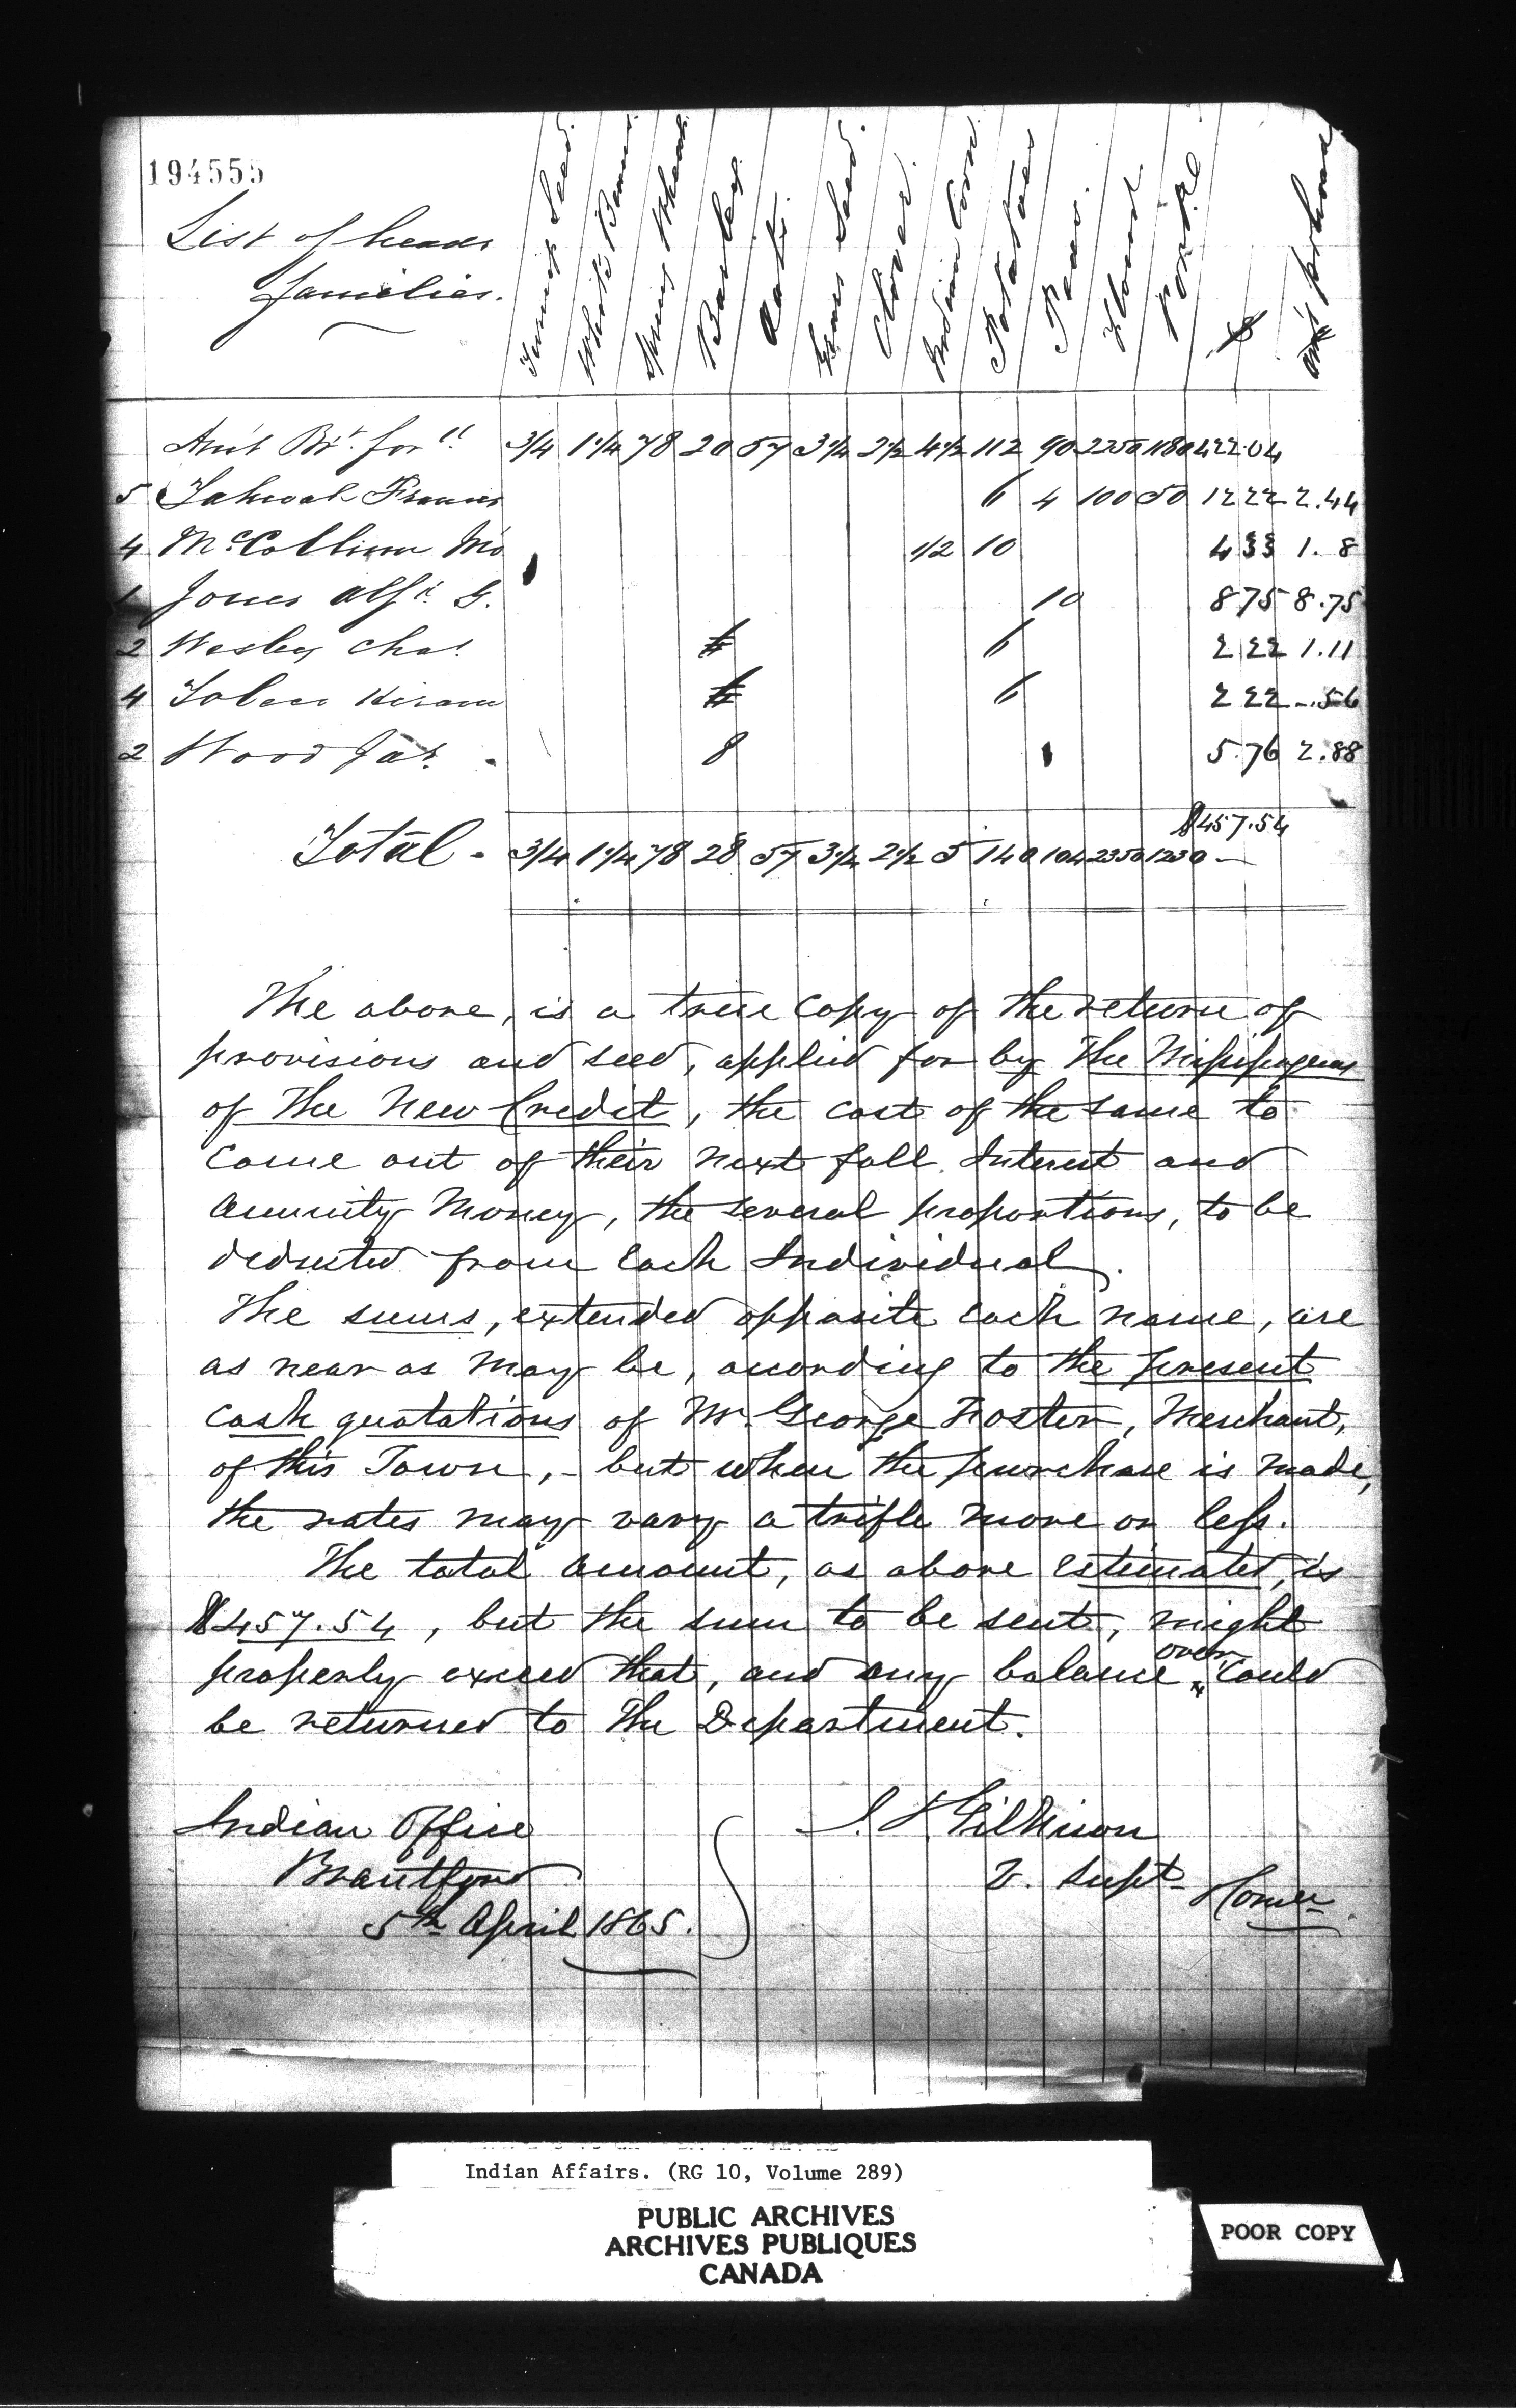 194555
List of heads
families.
Turnip Seed White Beans Spring Wheat Barley Oats Grass Seed Clover Indian Corn Potatoes Peas Flour Pork
$
Am't Brt. for'd 3/4 1 1/4 78 20 57 3 1/2 2 1/2 4 1/2 112 90 2250 1180 422.04
5 Tahwah Francis 6 4 100 50 12 22 2.44
4 McCollum 1/2 10 4 33 1. 8
1 Jones Alfd. G. 10 8 75 8.75
2 Wesley Chas. 6 2 22 1.11
4 Tobeco Hiram 6 2 22 -.56
2 Wood Jas. 8 5.76 2.88
$457.54
Total - 3/4 1 1/4 78 28 57 3 1/2 2 1/2 5 140 104 2350 1230 —
The above, is a true Copy of the return of
provisions and seed, applied for by The Missisagueas
of The New Credit, the cost of the same to
come out of their next fall Interest and
Annuity Money, the several proportions, to be
deducted from each Individual.
The sums, extended opposite each name, are
as near as may be, according to the present
cash quotations of Mr. George Foster, Merchant,
of this Town, - but when the purchase is made,
the rates may vary a trifle more or less.
The total amount, as above estimated, is
$457.54, but the sum to be sent, might
properly exceed that, and any balance over could
be returned to The Department.
Indian Office
Brantford
5th April 1865.
J. T. Gilkison
V. Supt.
Indian Affairs. (RG 10, Volume 289)
PUBLIC ARCHIVES
ARCHIVES PUBLIQUES
CANADA
POOR COPY